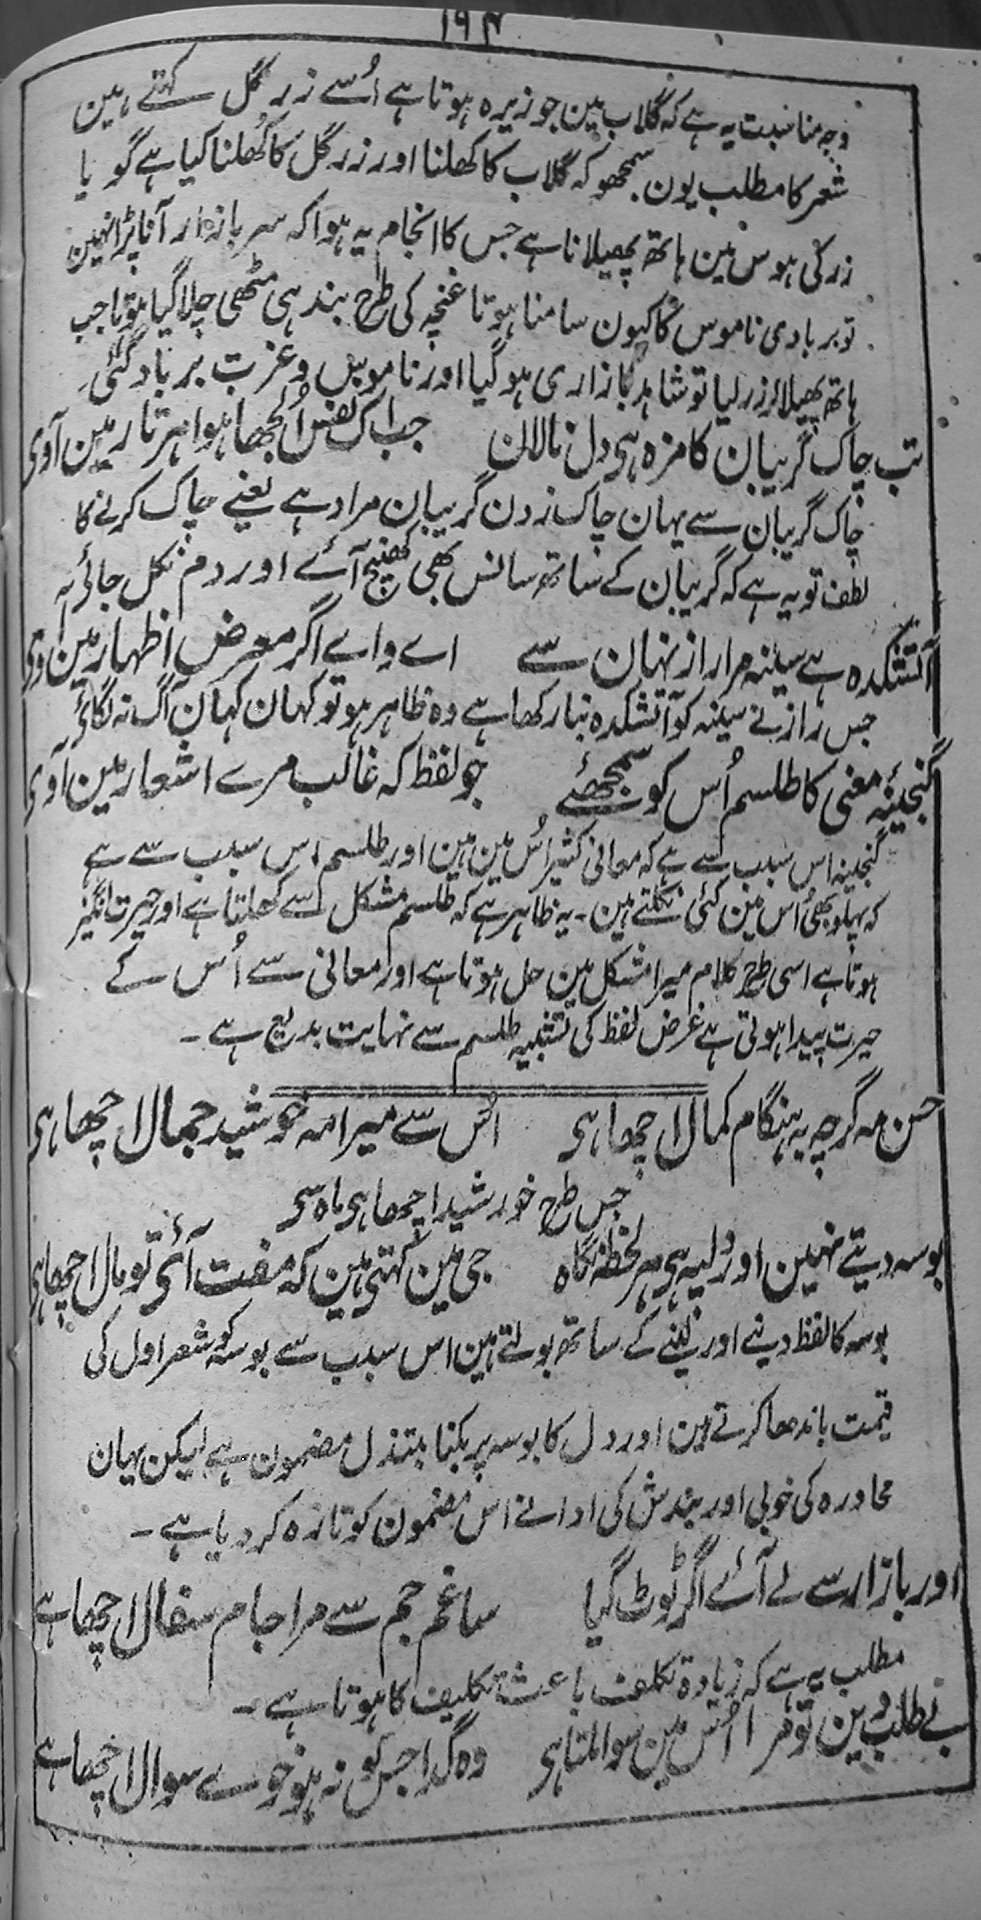 ۱۹۴
وجہ مناسبت یہ ہے کہ گلاب مین جو زیرہ ہوتا ہے اُسے زر گل کہتے ہین
شعر کا مطلب یون سمجھو کہ گلاب کا کھلنا اور زر گل کا کھلنا کیا ہے گویا
زر کی ہوس مین ہاتھ پھیلانا ہے جس کا انجام یہ ہوا کہ سر بازار آنا پڑا نہین
تو بربادی ناموس کا کیون سامنا ہوتا غنچہ کی طرح بند ہی مٹھی چلا گیا ہوتا جب
ہاتھ پھیلا کر زر لیا تو شاہد بازاری ہو گیا اور ناموس و عزت برباد گئی
تب چاک گریبان کا مزہ ہی دل نالان جب اک نفس اُلجھا ہوا ہر تار مین آوی
چاک گریبان سے یہان چاک زدن گریبان مراد ہے یعنے چاک کرنے کا
لطف تو یہ ہے کہ گریبان کے ساتھ سانس بھی کھنچ آئے اور دم نکل جائے
آتشکدہ ہے سینہ مرا راز نہان سے اے واے اگر معرض اظہار مین آوی
جس راز نے سینہ کو آتشکدہ بنا رکھا ہے وہ ظاہر ہو تو کہان کہان آگ نہ لگائے
گنجینہ معنی کا طلسم اُس کو سمجھئے جو لفظ کہ غالب مرے اشعار مین آوی
گنجینہ اس سبب سے ہے کہ معانی کثیر اُس مین ہین اور طلسم اس سبب سے ہے
کہ پہلو بھی اُس مین کئی نکلتے ہین ۔ یہ ظاہر ہے کہ طلسم مشکل سے کھلتا ہے اور حیرت انگیز
ہوتا ہے اسی طرح کلام میرا مشکل مین حل ہوتا ہے اور معانی سے اُس کے
حیرت پیدا ہوتی ہے غرض لفظ کی تشبیہ طلسم سے نہایت بدیع ہے ۔
حسن مہ گرچہ بہ ہنگام کمال اچھا ہی اُس سے میرا مہ خورشید جمال اچھا ہی
جس طرح خورشید اچھا ہی ماہ سی
بوسہ دیتے نہین اور دلپہ ہی ہر لحظہ نگاہ جی مین کہتی ہین کہ مفت آئی تو مال اچھا ہی
بوسہ کا لفظ دینے اور لینے کے ساتھ بولتے ہین اس سبب سے بوسہ کو شعر اول کی
قیمت باندھا کرتے ہین اور دل کا بوسہ پر بکنا مبتذل مضمون ہے لیکن یہان
محاورہ کی خوبی اور بندش کی ادا نے اس مضمون کو تازہ کر دیا ہے ۔
اور بازار سے لے آئے اگر ٹوٹ گیا ساغر جم سے مرا جام سفال اچھا ہے
مطلب یہ ہے کہ زیادہ تکلف باعث تکلیف کا ہوتا ہے ۔
بے طلب دین تو مزا اُس مین سوا ملتا ہی وہ گدا جس کو نہ ہو خوے سوال اچھا ہے